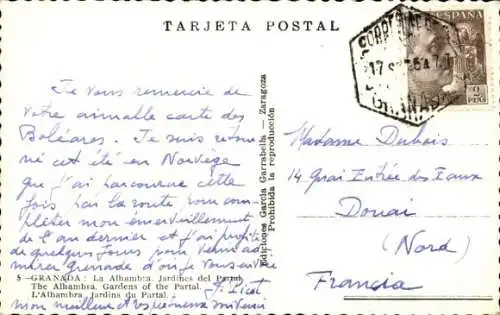 TARJETA POSTAL
CORREO AEREO
17 SE 54
GRANADA
ESPAÑA
2 PTAS
Je vous remercie de
votre aimable carte des
Baléares. Je suis retour
né cet été en Norvège
que j'ai parcourue cette
fois par la route pour com
pléter mon émerveillement
de l'an dernier et j'ai profité
de quelques jours pour venir ad
mirer Grenade d'où je vous envoie
mon meilleur et respectueux souvenir
F. Picot
5 - GRANADA: La Alhambra. Jardines del Partal.
The Alhambra. Gardens of the Partal.
L'Alhambra. Jardins du Partal.
Ediciones García Garrabella - Zaragoza
Prohibida la reproducción
Madame Dubois
14 Quai Entrée des Eaux
Douai
(Nord)
Francia